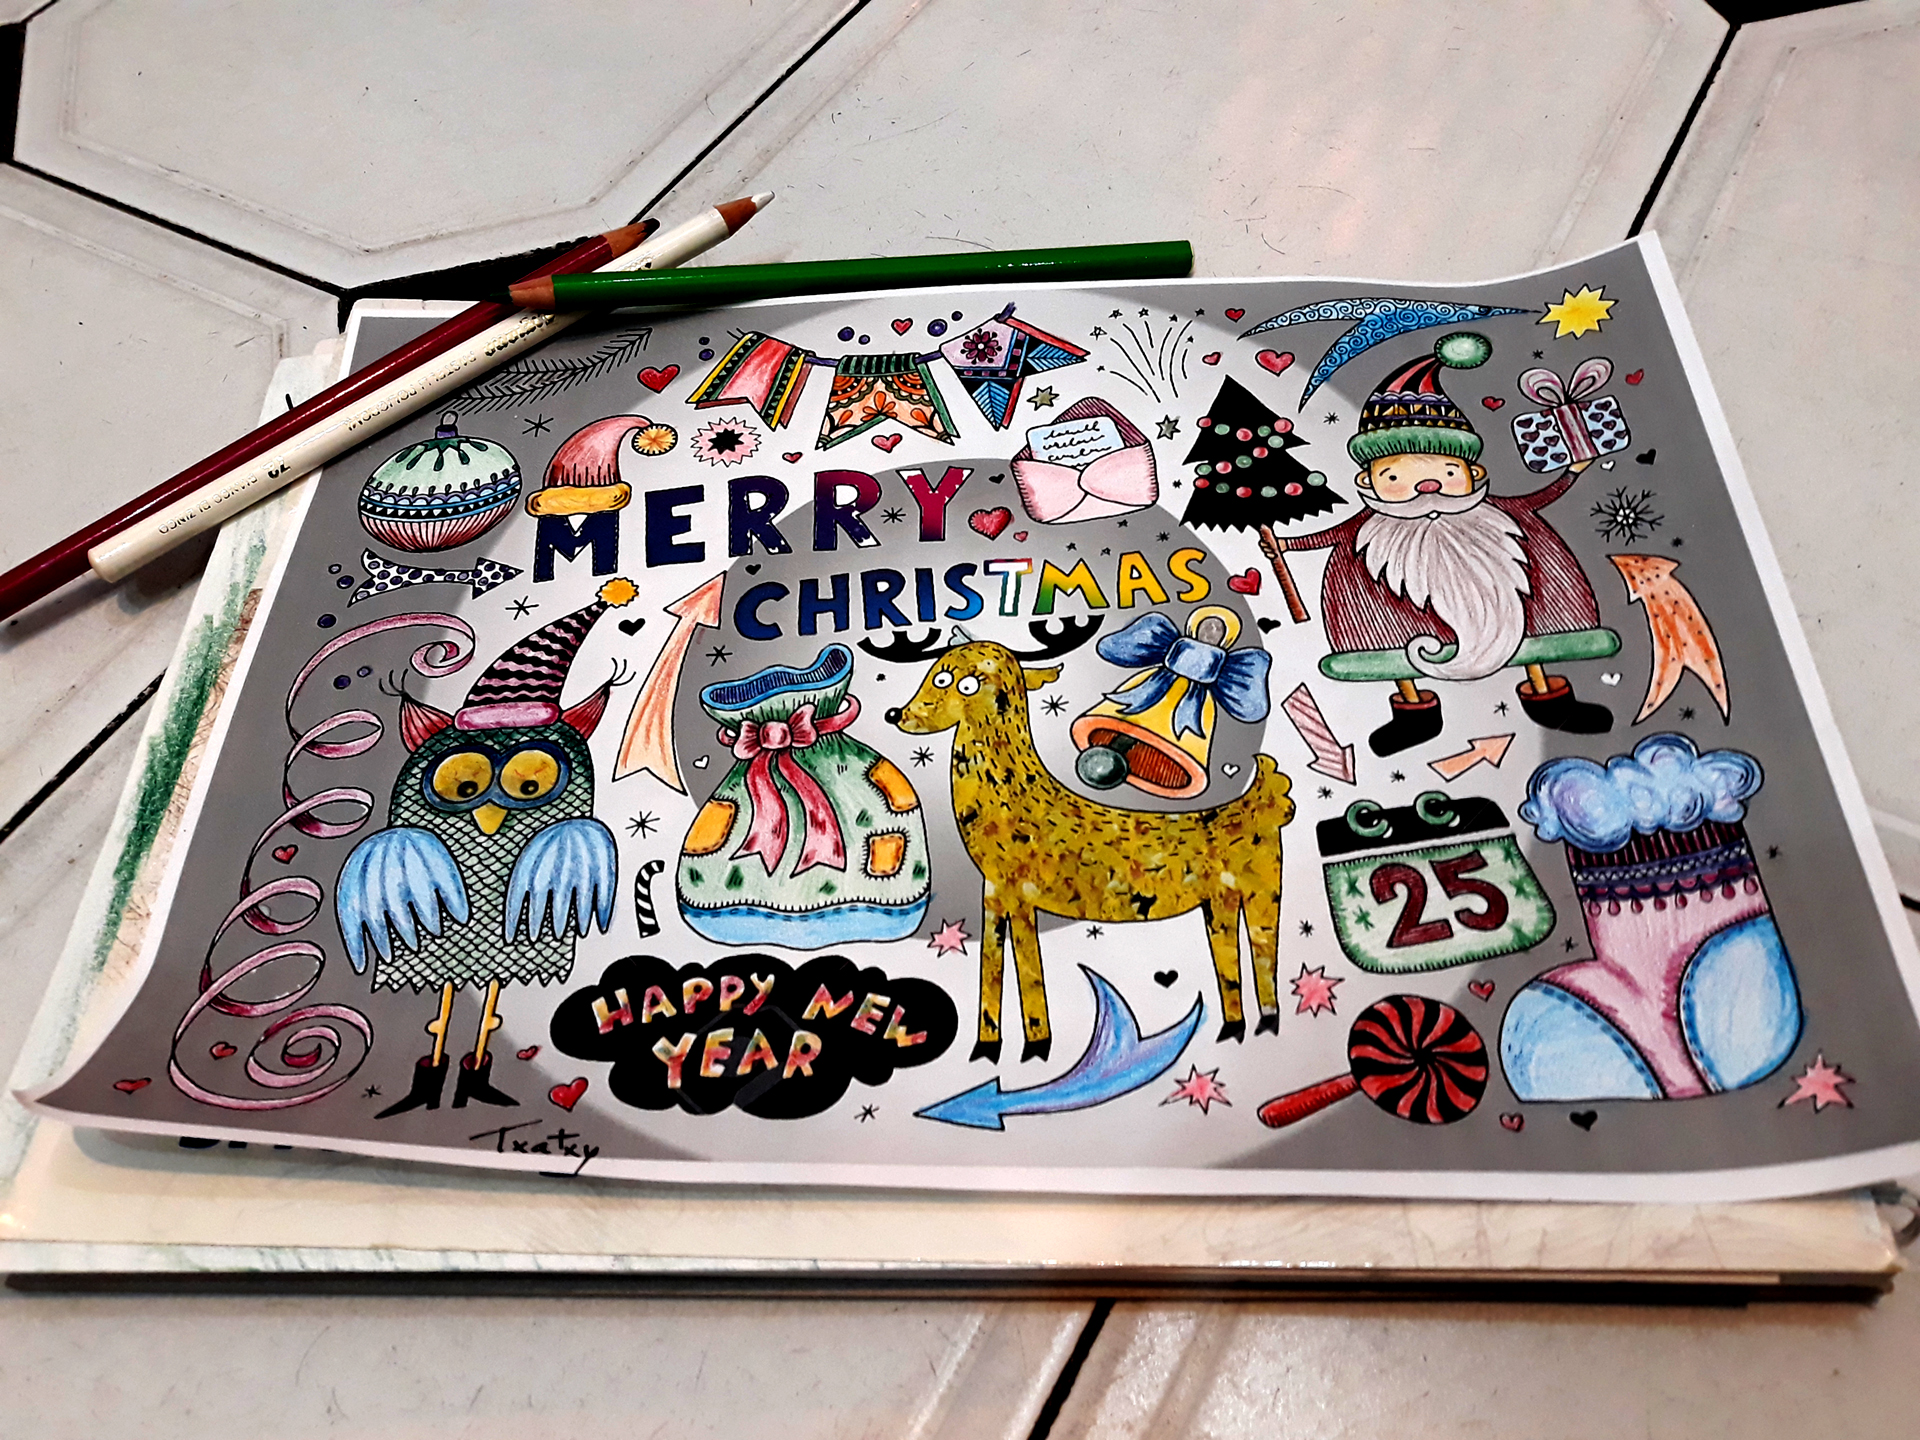 MERRY
CHRISTMAS
25
HAPPY NEW
YEAR
Txatxy